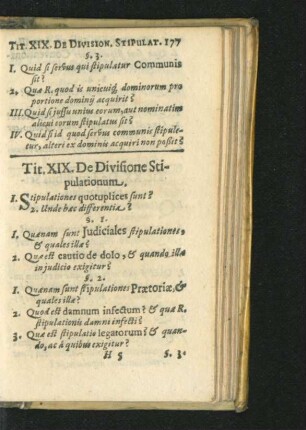 TIT. XIX. DE DIVISION. STIPULAT. 177
§. 3.
I. Quid si servus qui stipulatur Communis
sit?
2. Quæ R. quod is unicuiq; dominorum pro
portione dominij acquirit?
III. Quid si jussu unius eorum, aut nominatim
alicui eorum stipulatus sit?
IV. Quid si id quod servus communis stipule-
tur, alteri ex dominis acquiri non possit?
Tit. XIX. De Divisione Sti-
pulationum.
I. Stipulationes quotuplices sunt?
2. Unde hæc differentiæ?
§. 1.
1. Quænam sunt Judiciales stipulationes,
& quales illæ?
2. Quæ est cautio de dolo, & quando illa
in judicio exigitur?
§. 2.
1. Quænam sunt stipulationes Prætoriæ, &
quales illæ?
2. Quod est damnum infectum? & quæ R.
stipulationis damni infecti?
3. Quæ est stipulatio legatorum? & quan-
do, ac à quibus exigitur?
H 5 §. 3.